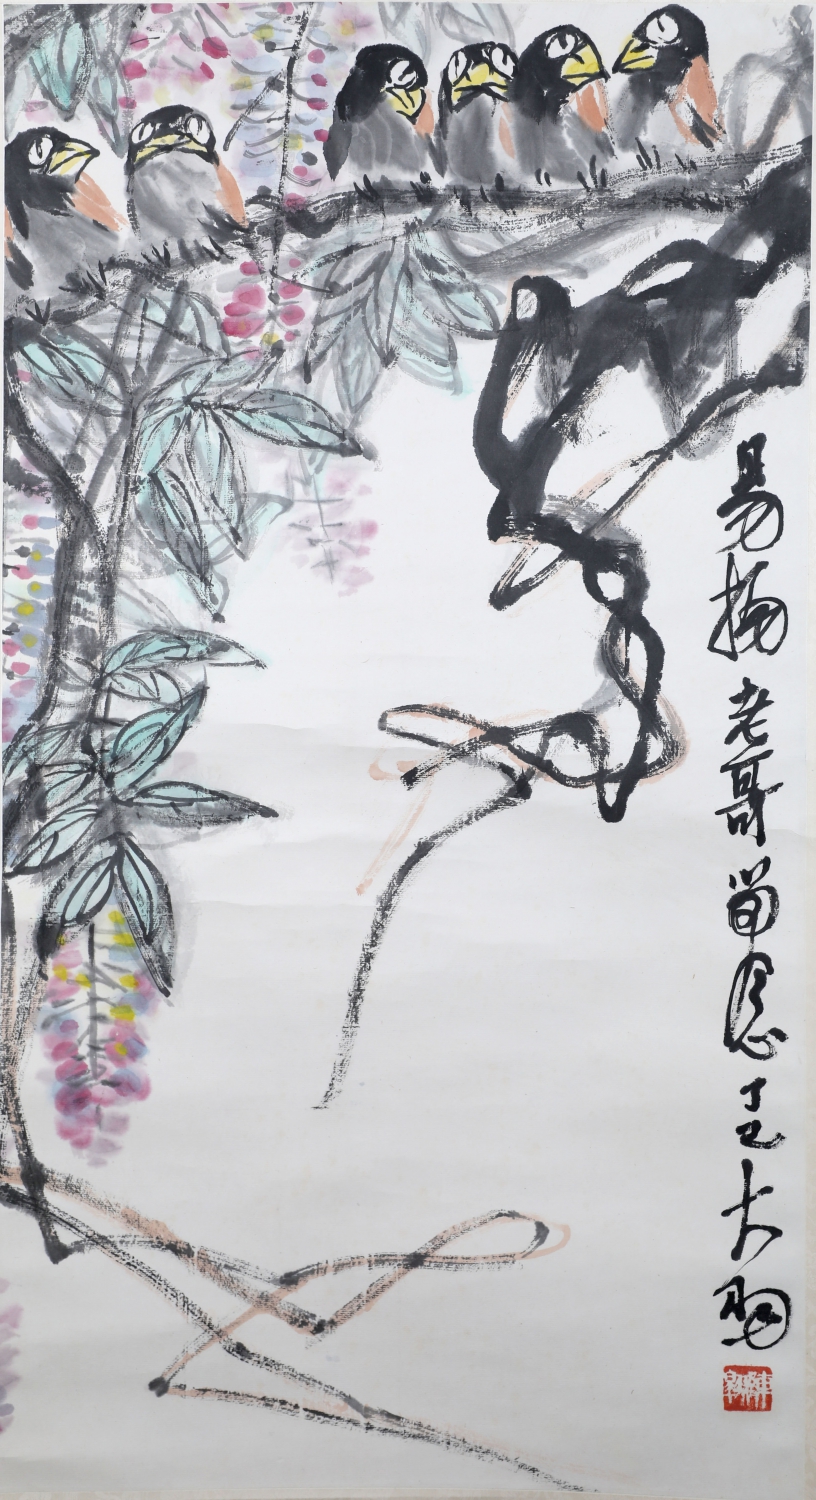 易老哥留念 丁巳 大羽